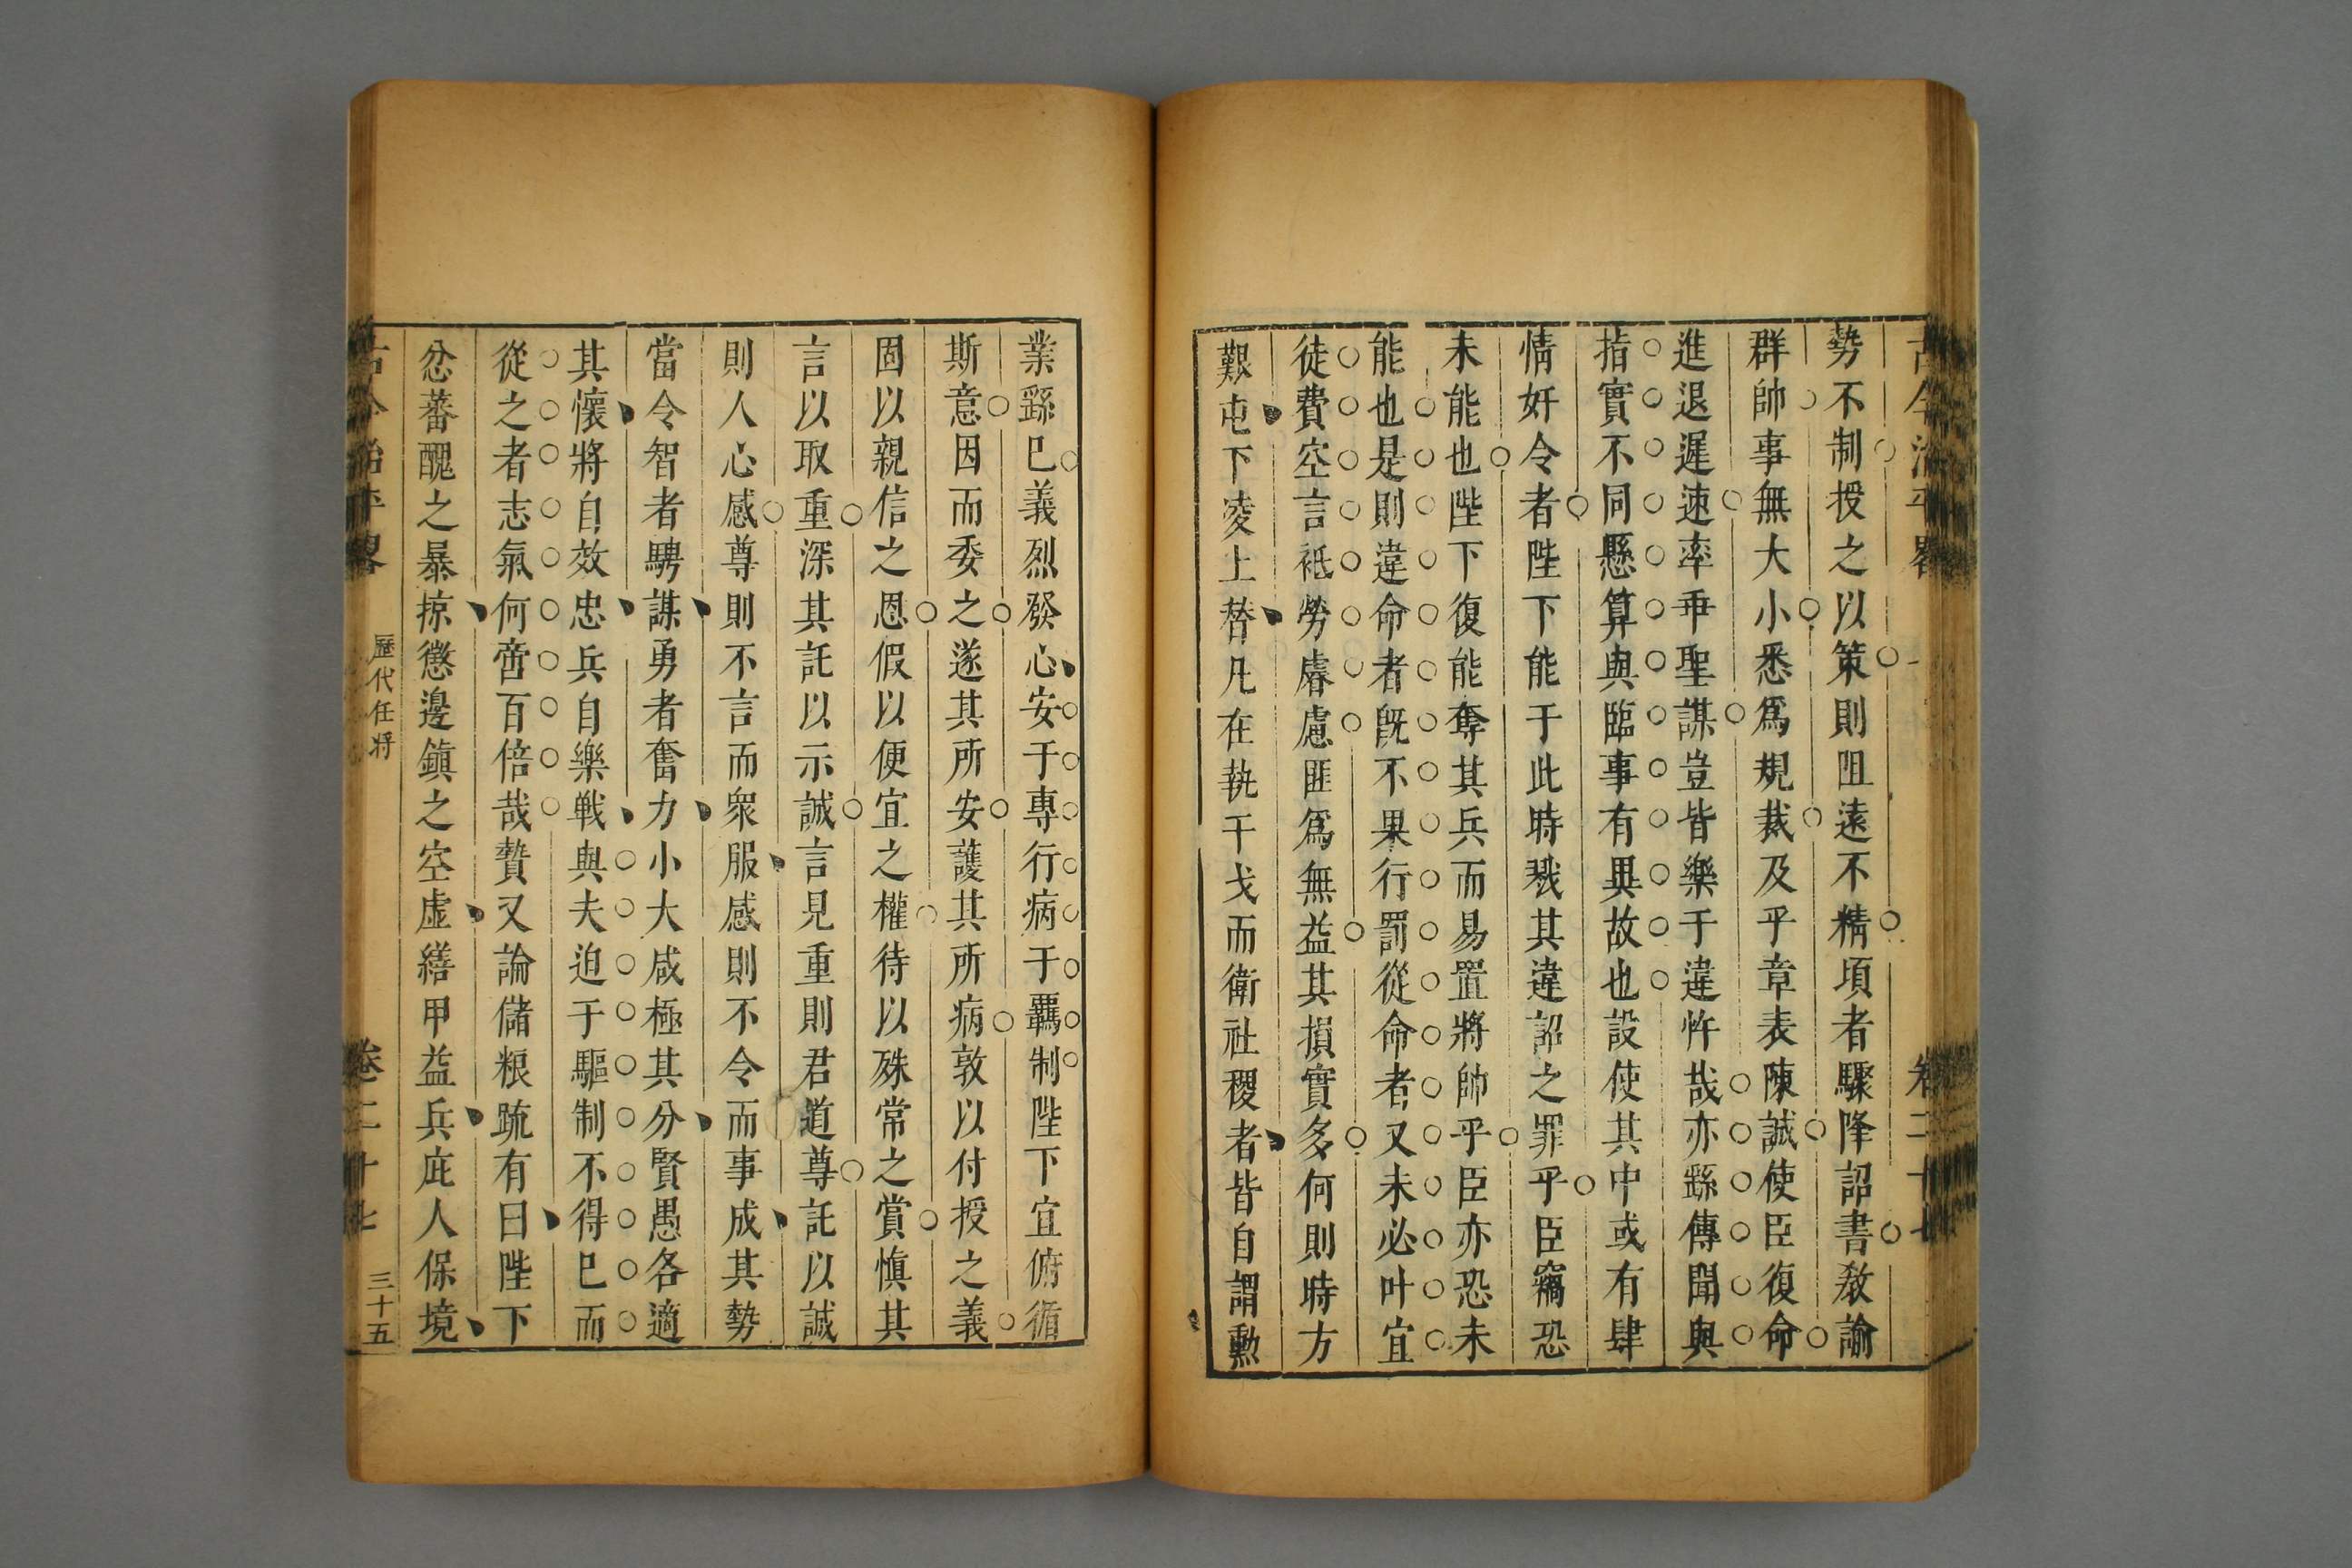 古今治平畧
卷二十七
勢不制授之以策則阻遠不精頃者驟降詔書敎諭
群帥事無大小悉爲規裁及乎章表陳誠使臣復命
進退遲速率乖聖謀豈皆樂于違忤哉亦繇傳聞與
指實不同懸算與臨事有異故也設使其中或有肆
情奸令者陛下能于此時戮其違詔之罪乎臣竊恐
未能也陛下復能奪其兵而易置將帥乎臣亦恐未
能也是則違命者旣不果行罰從命者又未必叶宜
徒費空言祗勞睿慮匪爲無益其損實多何則時方
艱屯下凌上替凡在執干戈而衛社稷者皆自謂勲
業繇巳義烈發心安于專行病于羈制陛下宜俯循
斯意因而委之遂其所安護其所病敦以付授之義
固以親信之恩假以便宜之權待以殊常之賞愼其
言以取重深其託以示誠言見重則君道尊託以誠
則人心感尊則不言而衆服感則不令而事成其勢
當令智者騁謀勇者奮力小大咸極其分賢愚各適
其懷將自效忠兵自樂戰與夫迫于驅制不得巳而
從之者志氣何啻百倍哉贄又論儲粮疏有曰陛下
忿蕃醜之暴掠懲邊鎮之空虚繕甲益兵庇人保境
古今治平畧
歷代任将
卷二十七
三十五